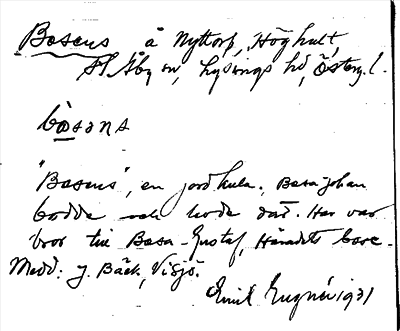 Basens å Nyttorp, Höghult,
St. Åby sn, Lysings hd, Österg. l.
bàsans
"Basens", en jordkula. Basa-Johan
bodde och rodde där. Han var
bror till Basa-Gustaf, Häradets bare-
Medd. J. Bäck, Visjö.
Emil 1931